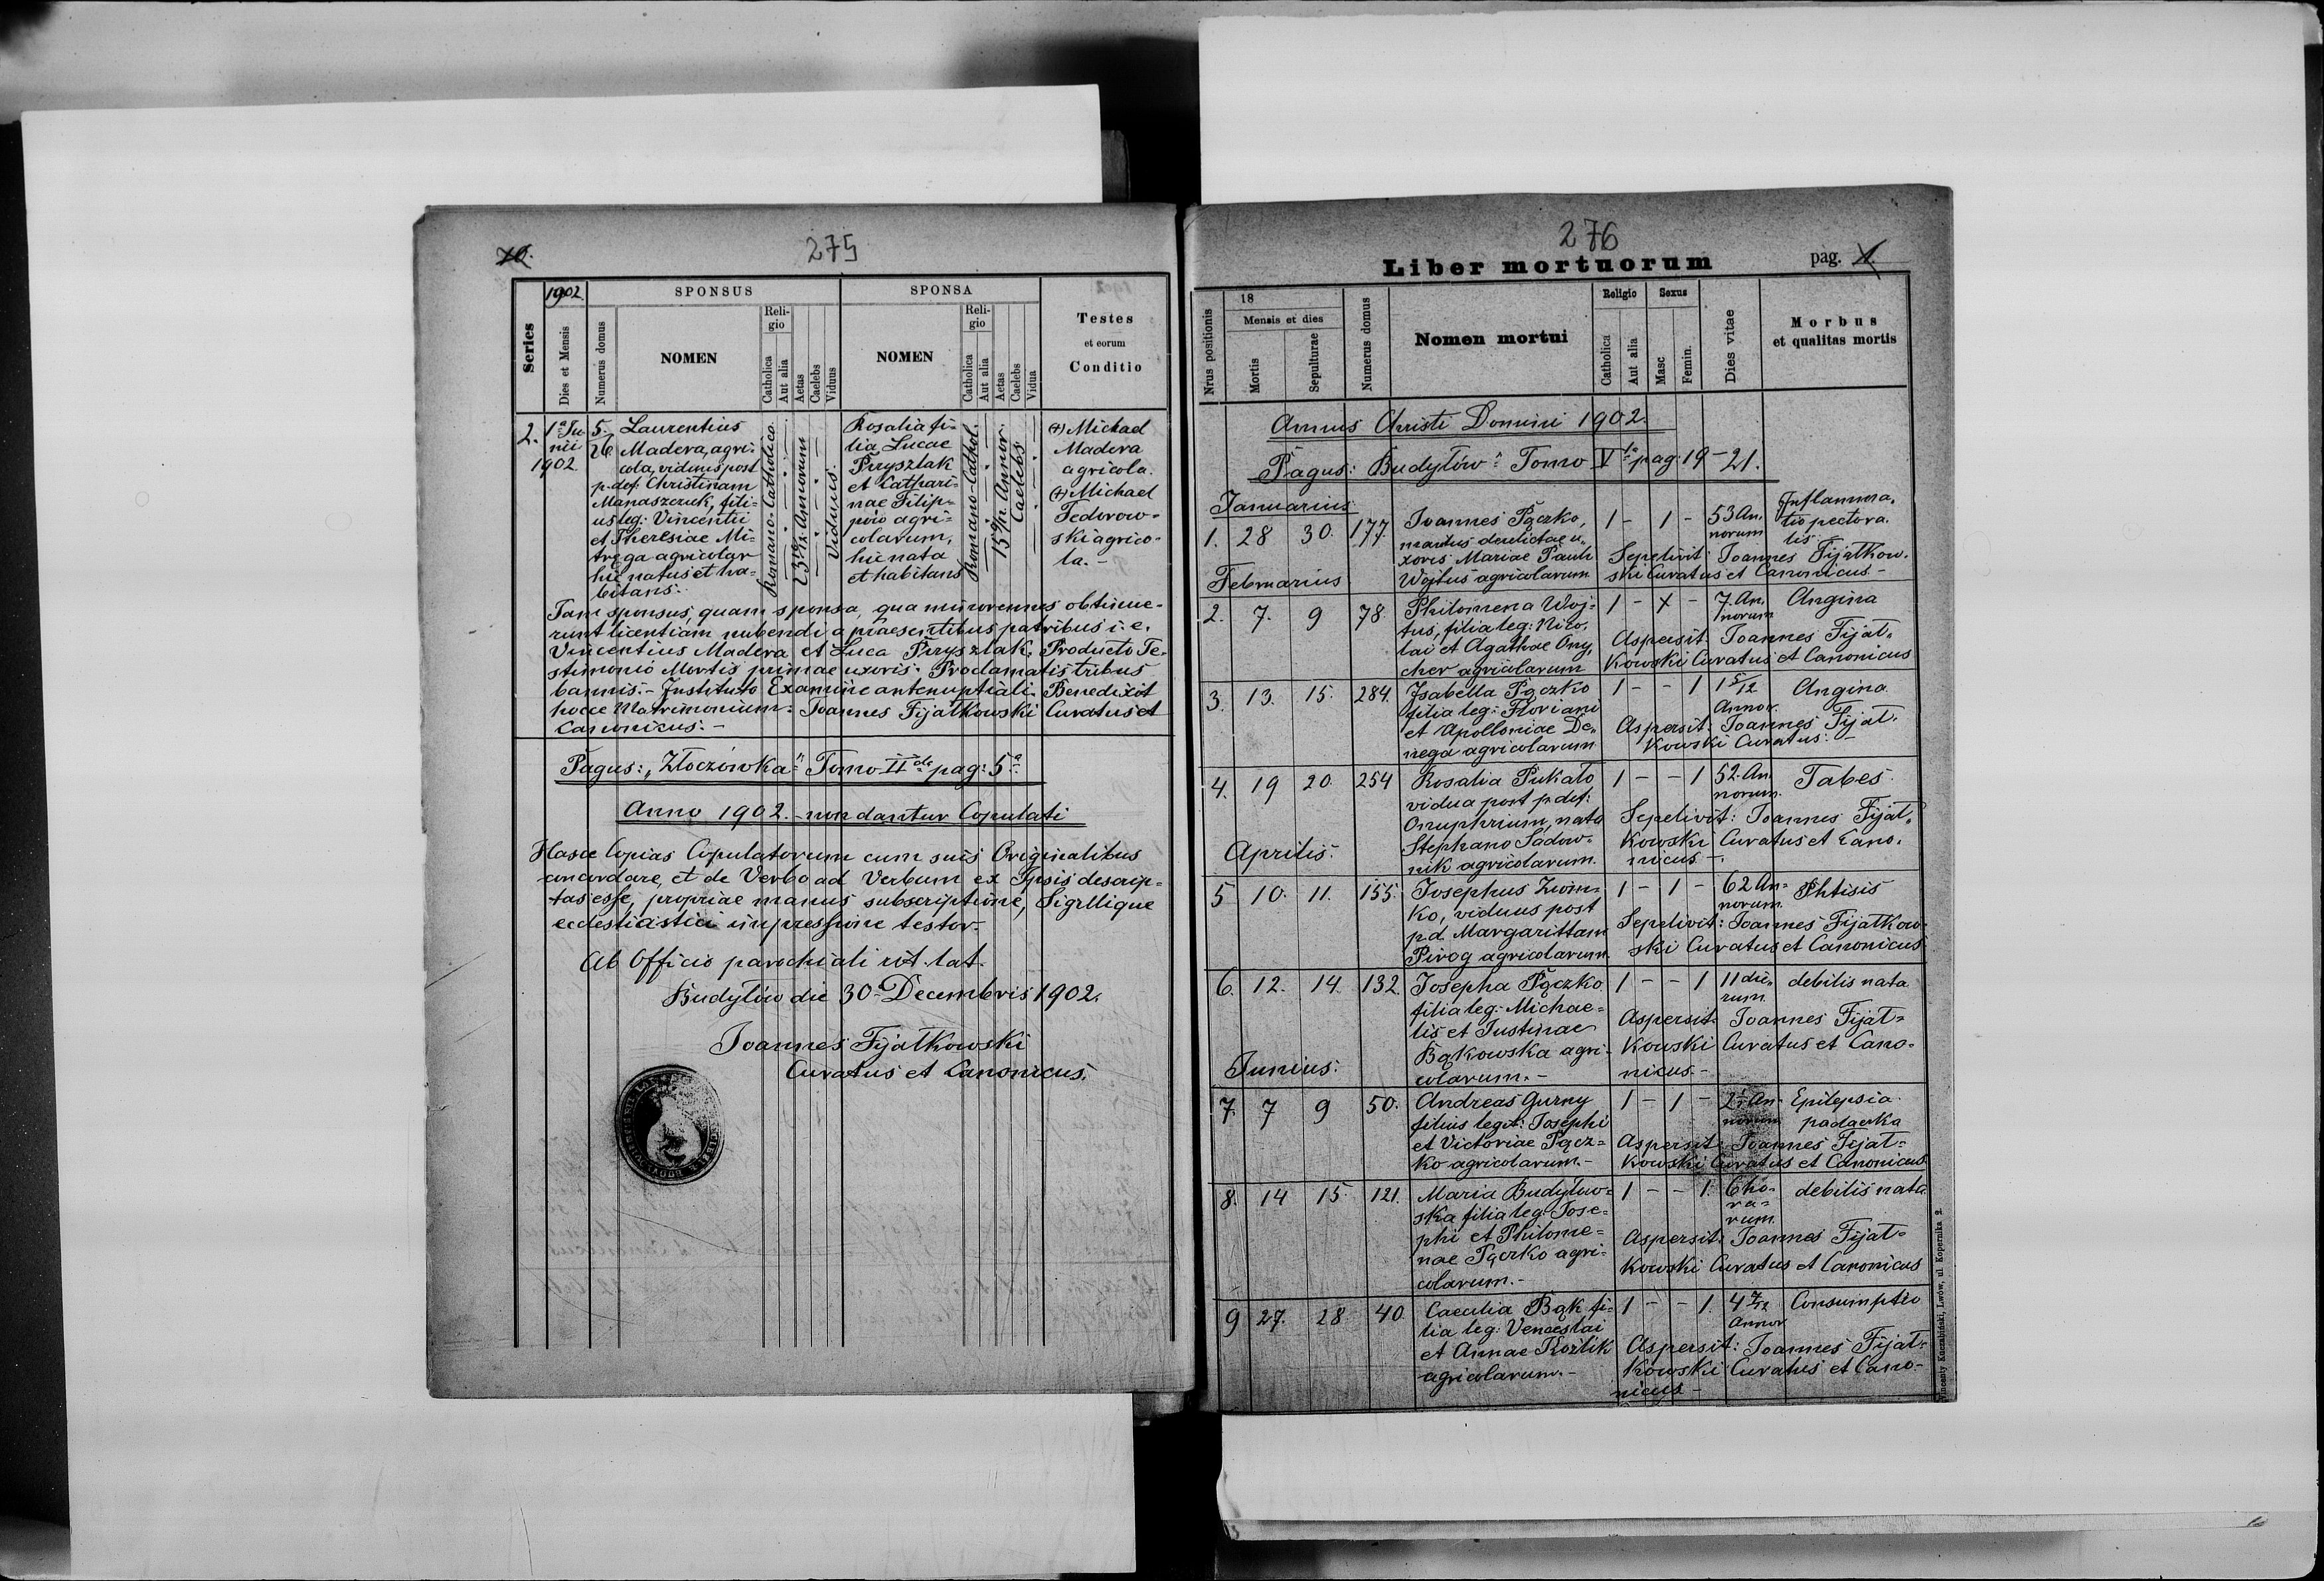 10.
275
1902.
SPONSUS
SPONSA
Series
Dies et Mensis
Numerus domus
NOMEN
Religio
Catholica
Aut alia
Aetas
Caelebs
Viduus
NOMEN
Religio
Catholica
Aut alia
Aetas
Caelebs
Vidua
Testes
et eorum
Conditio
2.
1a Ju-
nii
1902
5.
26
Laurentius
Madera, agri-
cola, viduus post
p. def. Christinam
Manaszczuk, fili-
us leg: Vincentii
et Theresiae Mi-
tręga agricolar
hic natus et ha-
bitans.
Romano-Catholica
Annorum
Viduus.
Rosalia fi-
lia Lucae
Przyszlak
et Cathari-
nae Filip-
pów agri-
colarum,
hic nata
et habitans
Romano-Cathol.
Annor.
Caelebs
(+) Michael
Madera
agricola.
(+) Michael
Fedorow-
ski agrico-
la.-
Tam sponsus, quam sponsa, qua minorennes obtinue-
runt licentiam nubendi a praesentibus patribus i. e.
Vincentius Madera et Luca Przyszlak. Producto Te-
stimonio Mortis primae uxoris. Proclamatis tribus
bannis.- Instituto Examine antenuptiali. Benedixit
hocce Matrimonium: Joannes Fijałkowski Curatus et
Canonicus.-
Pagus: „Złoczówka" Tomo II do pag: 5a
Anno 1902.- non dantur Copulati
Hasce Copias Copulatorum cum suis Originalibus
concordare, et de Verbo ad Verbum ex Ipsis descrip-
tas esse, propriae manus subscriptione, Sigillique
ecclesiastici impressione testor.-
Ab Officio parochiali rit. lat.
Budyłów die 30 Decembris 1902.
Joannes Fijałkowski
Curatus et Canonicus.
276
Liber mortuorum
pag. 1.
Nrus positionis
18
Mensis et dies
Mortis
Sepulturae
Numerus domus
Nomen mortui
Religio
Catholica
Aut alia
Sexus
Masc
Femin.
Dies vitae
Morbus
et qualitas mortis
Annus Christi Domini 1902.
Pagus: Budyłów" Tomo V to pag: 19-21.
Januarius
1. 28 30. 177. Joannes Pączko, 1 - 1 - 53 An-
norum
Inflamma-
tio pectora-
lis
maritus derelictae u-
xoris Mariae Pauli
Wojtus agricolarum
Sepelivit Joannes Fijałkow-
ski Curatus et Canonicus-
Februarius
2. 7. 9 78. Philomena Woj- 1 - x - 7. An-
norum
Angina
tus, filia leg: Nico-
lai et Agathae Ony-
cher agricolarum
Aspersit Joannes Fijał-
kowski Curatus et Canonicus
3. 13. 15. 284. Isabella Pączko 1 - - 1 1 5/12
Annor.
Angina
filia leg: Floriani
et Apolloniae De-
nega agricolarum
Aspersit: Joannes Fijał-
kowski Curatus.-
4. 19 20. 254 Rosalia Pukało 1 - - 1 52. An-
norum.
Tabes.
vidua post p. def:
Onuphrium, nata
Stephano Sadow-
nik agricolarum.
Sepelivit: Joannes Fijał-
kowski Curatus et Cano-
nicus-.
Aprilis.
5 10. 11. 155. Josephus 1 - 1 - 62 An-
norum.
Phtisis
ko, viduus post
p.d. Margarittam
Pirog agricolarum.
Sepelivit: Joannes Fijałkow-
ski Curatus et Canonicus
6. 12. 14. 132. Josepha Pączko 1 - - 1 11 die-
rum
debilis nata
filia leg: Michae-
lis et Justinae
Bąkowska agri-
colarum.-
Aspersit: Joannes Fijał-
kowski Curatus et Cano-
nicus.-
Junius:
7. 7 9 50. Andreas Gurny 1 - 1 - 2½ An-
norum
Epilepsia
padaczka
filius legit: Josephi
et Victoriae Pącz-
ko agricolarum.-
Aspersit Joannes Fijał-
kowski Curatus et Canonicus
8. 14 15. 121. Maria Budyłow- 1 - - 1. 6 ho-
ra-
rum.
debilis nata
ska filia leg. Jose-
phi et Philome-
nae Pączko agri-
colarum.-
Aspersit: Joannes Fijał-
kowski Curatus et Canonicus
9 27. 28 40 Caecilia Bąk fi- 1 - - 1. 4 7/12
Annor
Consumptio
lia leg: Venceslai
et Annae Kozlik
agricolarum.-
Aspersit: Joannes Fijał-
kowski Curatus et Cano-
nicus-
Wincenty Kuczabiński, Lwów, ul. Kopernika 2.